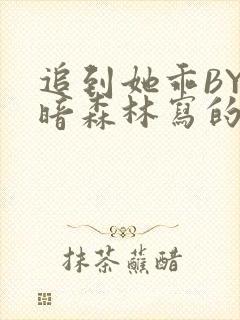 追到她乖BY
暗森林寫的
抹茶蘸醋